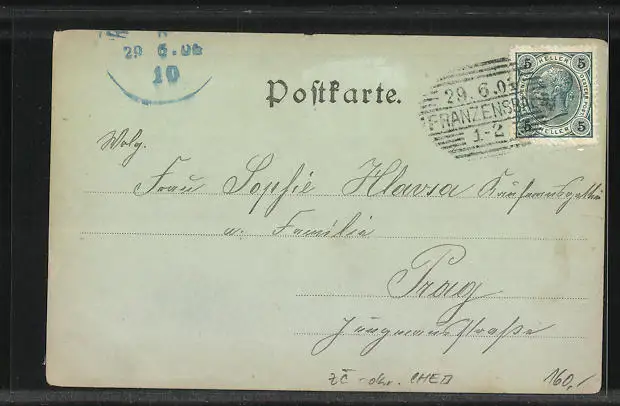 29 6.06
10
Postkarte.
29.6.0
FRANZENSBAD
1-2
5 HELLER 5
5 HELLER 5
Wolg.
Frau Sophie Hlavsa Kaufmannsgattin
u. Familie
Prag
Jungmannstraße
ZČ - okr. CHEB
160,-